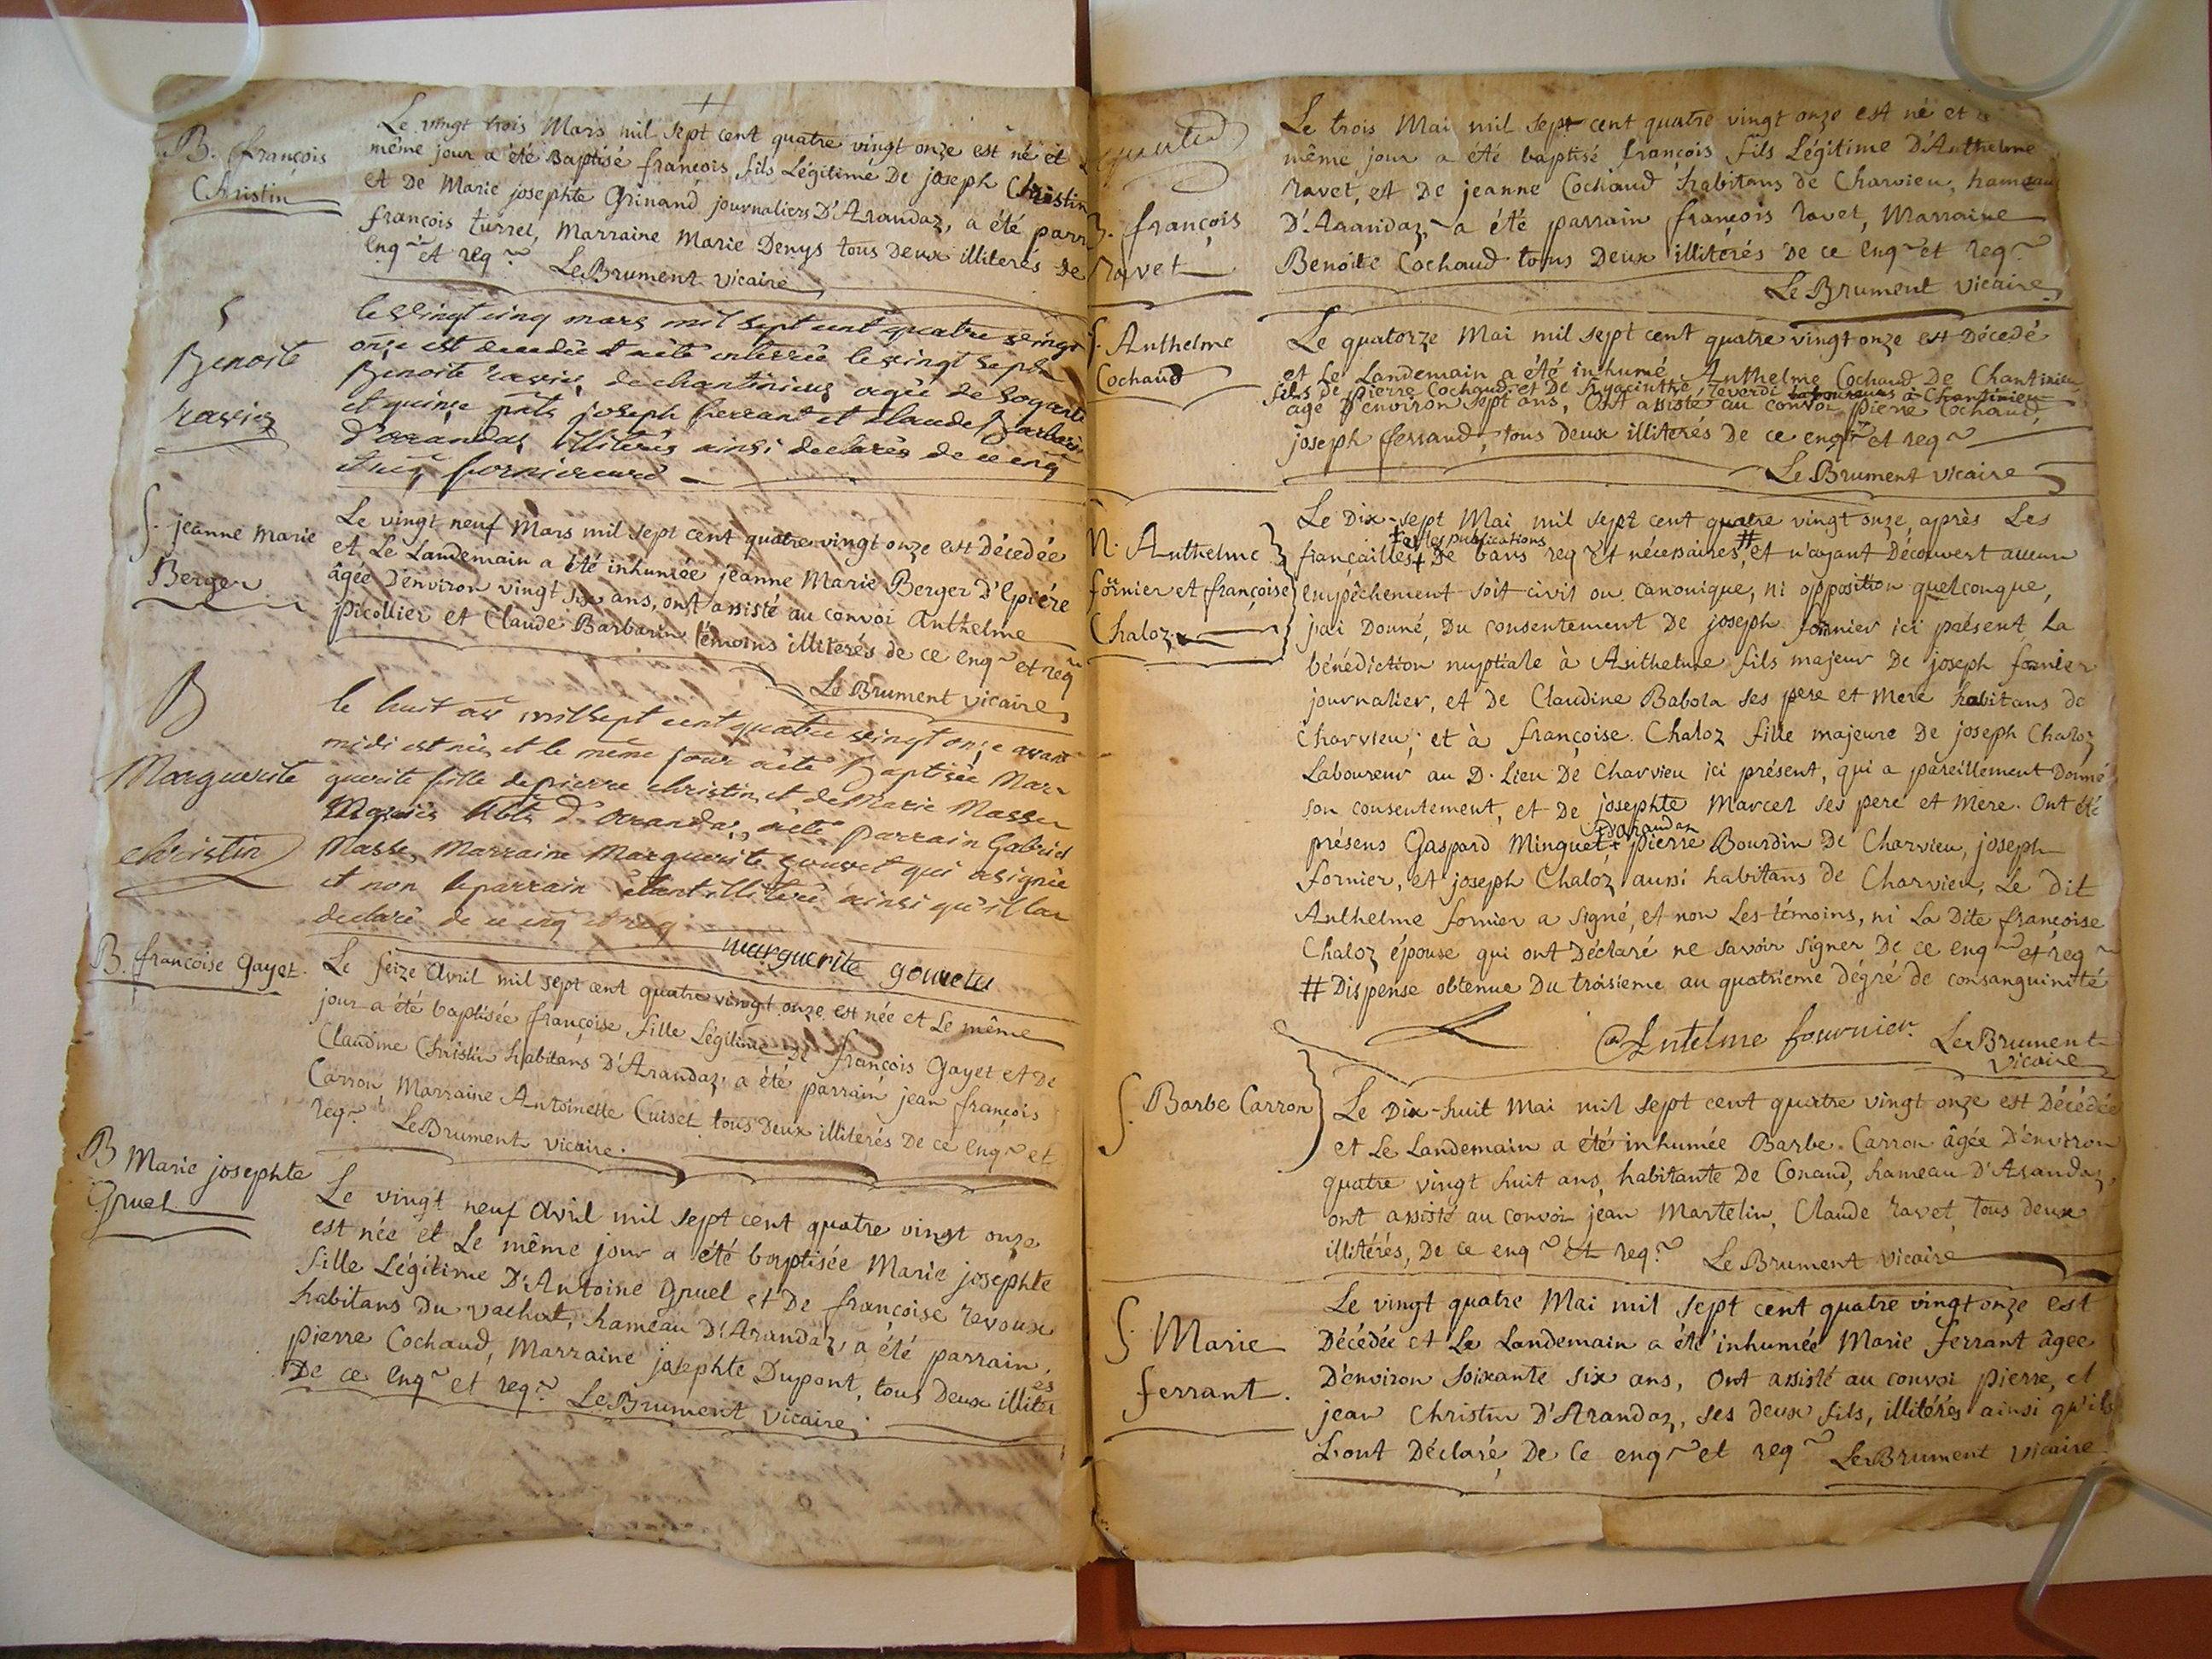 B. françois
Christin
Le vingt trois Mars mil sept cent quatre vingt onze est né et
même jour a été Baptisé françois fils Légitime De joseph Christin
et De Marie josephte Grinand journaliers D'Arandaz, a été parr
françois turrel, Marraine Marie Denys tous Deux illiterés De
enq.r et req.r LeBrument vicaire
S
Benoite
ravier
le vingt cinq mars mil sept cent quatre vingt
onze est decedée et a été enterrée le vingt sept
Benoite ravier de chantinieux agée de
et quinze pnts joseph ferrant et Claude Barbarin
d'arandas illiterés ainsi declarés de ce enq
S. jeanne Marie
Berger
Le vingt neuf Mars mil sept cent quatre vingt onze est Décedée
et Le Landemain a été inhumée jeanne Marie Berger D'Epiére
âgée D'environ vingt six ans, ont assisté au convoi Anthelme
Picollier et Claude Barbarin témoins illiterés de ce enq.r et req.r
Le Brument vicaire
B
Marguerite
christin
le huit avr mil sept cent quatre vingt onze avant
midi est née et le meme jour a été Baptisée Mar-
guerite fille de pierre christin et de Marie Masse
Mariés habts d'arandas, a été parrain Gabriel
Masse, Marraine Marguerite gouvet qui a signée
et non le parrain étant illiteré ainsi qu'il l'a
declaré de ce enq et req
marguerite
B. françoise Gayet.
Le seize Avril mil sept cent quatre vingt onze est née et Le même
jour a été baptisée françoise fille Légitime De françois Gayet et De
Claudine Christin habitans D'Arandaz, a été parrain jean françois
Carron Marraine Antoinette Cuiset tous Deux illiterés De ce enq.r et
req.r LeBrument vicaire.
B Marie josephte
Gruel
Le vingt neuf Avril mil sept cent quatre vingt onze
est née et Le même jour a été baptisée Marie josephte
fille Légitime D'Antoine Gruel et De françoise revoux
habitans Du vachat, hameau D'Arandaz, a été parrain
Pierre Cochaud, Marraine josephte Dupont, tous Deux illiterés
De ce enq.r et req.r LeBrument vicaire
françois
ravet
Le trois Mai mil sept cent quatre vingt onze est né et
même jour a été baptisé françois fils Légitime D'Anthelme
ravet, et De jeanne Cochaud habitans de Charvieu, hameau
D'Arandaz, a été parrain françois ravet, Marraine
Benoite Cochaud tous Deux illiterés De ce enq.r et req.r
Le Brument vicaire
S. Anthelme
Cochaud
Le quatorze Mai mil sept cent quatre vingt onze est Décedé
et Le Landemain a été inhumé Anthelme Cochaud De Chantinieu
fils De pierre Cochaud et De hyacinthe reverdi laboureurs à Chantinieu
âgé D'environ sept ans, Ont assisté au convoi pierre Cochaud,
joseph ferrand, tous Deux illiterés De ce enq.r et req.r
Le Brument vicaire
M. Anthelme
förnier et françoise
Chaloz
Le Dix-sept Mai mil sept cent quatre vingt onze, après Les
et les publications
françailles + De bans req et nécessaires, # et n'ayant Découvert aucun
empêchement soit civil ou canonique, ni opposition quelconque,
j'ai Donné, Du consentement De joseph fornier ici présent, La
bénédiction nuptiale à Anthelme fils majeur De joseph fornier
journalier, et De Claudine Babola ses pere et Mere habitans de
Charvieu; et à françoise Chaloz fille majeure De joseph Chaloz
Laboureur au D. Lieu De Charvieu ici présent, qui a pareillement Donné
son consentement, et De josephte Marcel ses pere et Mere. Ont été
D'arandas
présens Gaspard Minguet + pierre Bourdin De Charvieu, joseph
fornier, et joseph Chaloz, aussi habitans De Charvieu, Le Dit
Anthelme fornier a signé, et non Les témoins, ni La Dite françoise
Chaloz épouse qui ont Déclaré ne savoir signer De ce enq.r et req.r
# Dispense obtenue Du troisieme au quatrieme dégré de consanguinité
Antelme fournier. LeBrument
vicaire
S. Barbe Carron
Le Dix-huit Mai mil sept cent quatre vingt onze est Décédée
et Le Landemain a été inhumée Barbe Carron âgée D'environ
quatre vingt huit ans, habitante De Conand, hameau D'Arandaz,
ont assisté au convoi jean Martelin, Claude ravet, tous deux
illitérés, De ce enq.r et req.r Le Brument vicaire
S. Marie
ferrant.
Le vingt quatre Mai mil sept cent quatre vingt onze est
Décédée et Le Landemain a été inhumée Marie ferrant âgée
D'environ soixante six ans, Ont assisté au convoi pierre, et
jean Christin D'Arandaz, ses deux fils, illitérés ainsi qu'ils
L'ont Déclaré, De Ce enq.r et req.r LeBrument vicaire